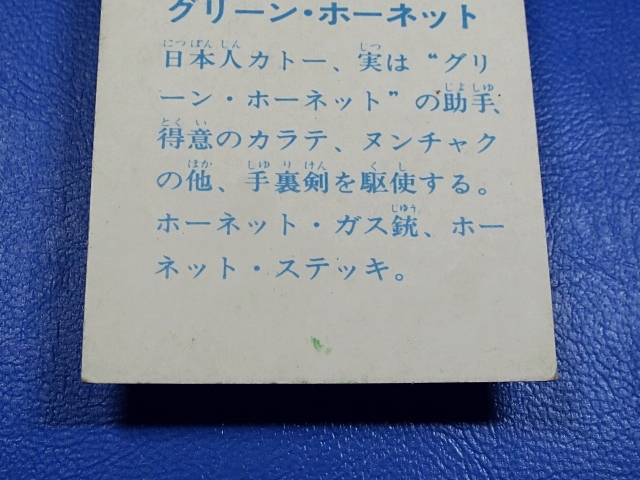 グリーン・ホーネット
日本人カトー、実は“グリ
ーン・ホーネット”の助手、
得意のカラテ、ヌンチャク
の他、手裏剣を駆使する。
ホーネット・ガス銃、ホー
ネット・ステッキ。